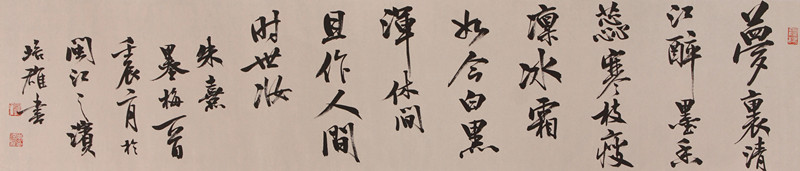 夢裏清
江醉墨香
蕊寒枝瘦
凛冰霜
如今白黑
渾休問
且作人間
时世妆
朱熹
墨梅一首
壬辰二月於
闽江之濱
培雄書